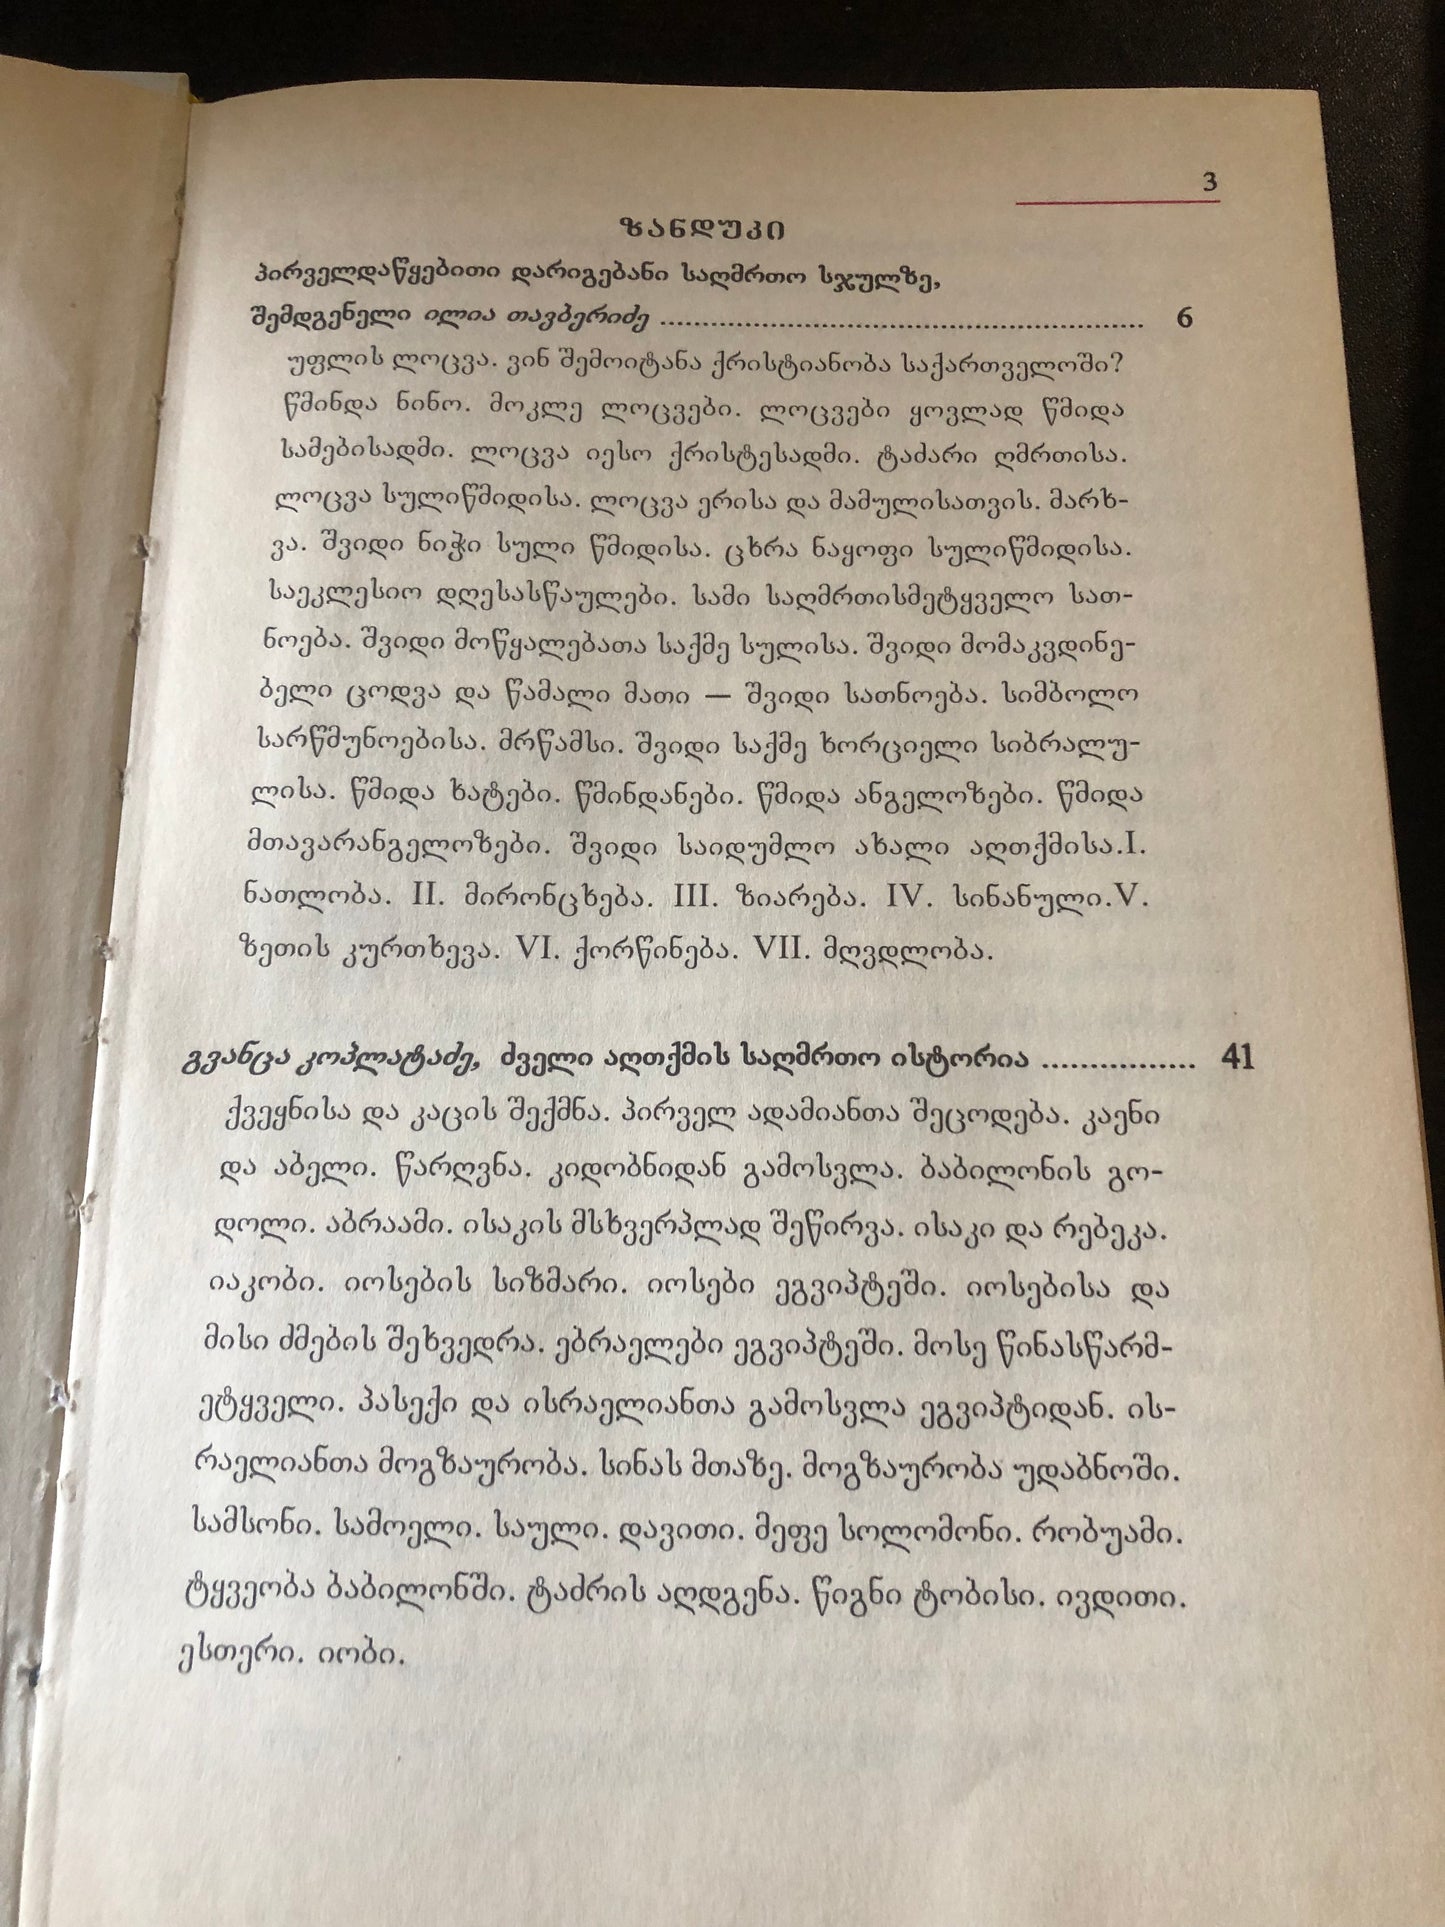 3
ზანდუკი
პირველდაწყებითი დარიგებანი საღმრთო სჯულზე,
შემდგენელი ილია თავბერიძე ........................................................ 6
უფლის ლოცვა. ვინ შემოიტანა ქრისტიანობა საქართველოში?
წმინდა ნინო. მოკლე ლოცვები. ლოცვები ყოვლად წმიდა
სამებისადმი. ლოცვა იესო ქრისტესადმი. ტაძარი ღმრთისა.
ლოცვა სულიწმიდისა. ლოცვა ერისა და მამულისათვის. მარხ-
ვა. შვიდი ნიჭი სული წმიდისა. ცხრა ნაყოფი სულიწმიდისა.
საეკლესიო დღესასწაულები. სამი საღმრთისმეტყველო სათ-
ნოება. შვიდი მოწყალებათა საქმე სულისა. შვიდი მომაკვდინე-
ბელი ცოდვა და წამალი მათი — შვიდი სათნოება. სიმბოლო
სარწმუნოებისა. მრწამსი. შვიდი საქმე ხორციელი სიბრალუ-
ლისა. წმიდა ხატები. წმინდანები. წმიდა ანგელოზები. წმიდა
მთავარანგელოზები. შვიდი საიდუმლო ახალი აღთქმისა.I.
ნათლობა. II. მირონცხება. III. ზიარება. IV. სინანული.V.
ზეთის კურთხევა. VI. ქორწინება. VII. მღვდლობა.
გვანცა კოპლატაძე, ძველი აღთქმის საღმრთო ისტორია ................ 41
ქვეყნისა და კაცის შექმნა. პირველ ადამიანთა შეცოდება. კაენი
და აბელი. წარღვნა. კიდობნიდან გამოსვლა. ბაბილონის გო-
დოლი. აბრაამი. ისაკის მსხვერპლად შეწირვა. ისაკი და რებეკა.
იაკობი. იოსების სიზმარი. იოსები ეგვიპტეში. იოსებისა და
მისი ძმების შეხვედრა. ებრაელები ეგვიპტეში. მოსე წინასწარმ-
ეტყველი. პასექი და ისრაელიანთა გამოსვლა ეგვიპტიდან. ის-
რაელიანთა მოგზაურობა. სინას მთაზე. მოგზაურობა უდაბნოში.
სამსონი. სამოელი. საული. დავითი. მეფე სოლომონი. რობუამი.
ტყვეობა ბაბილონში. ტაძრის აღდგენა. წიგნი ტობისი. ივდითი.
ესთერი. იობი.